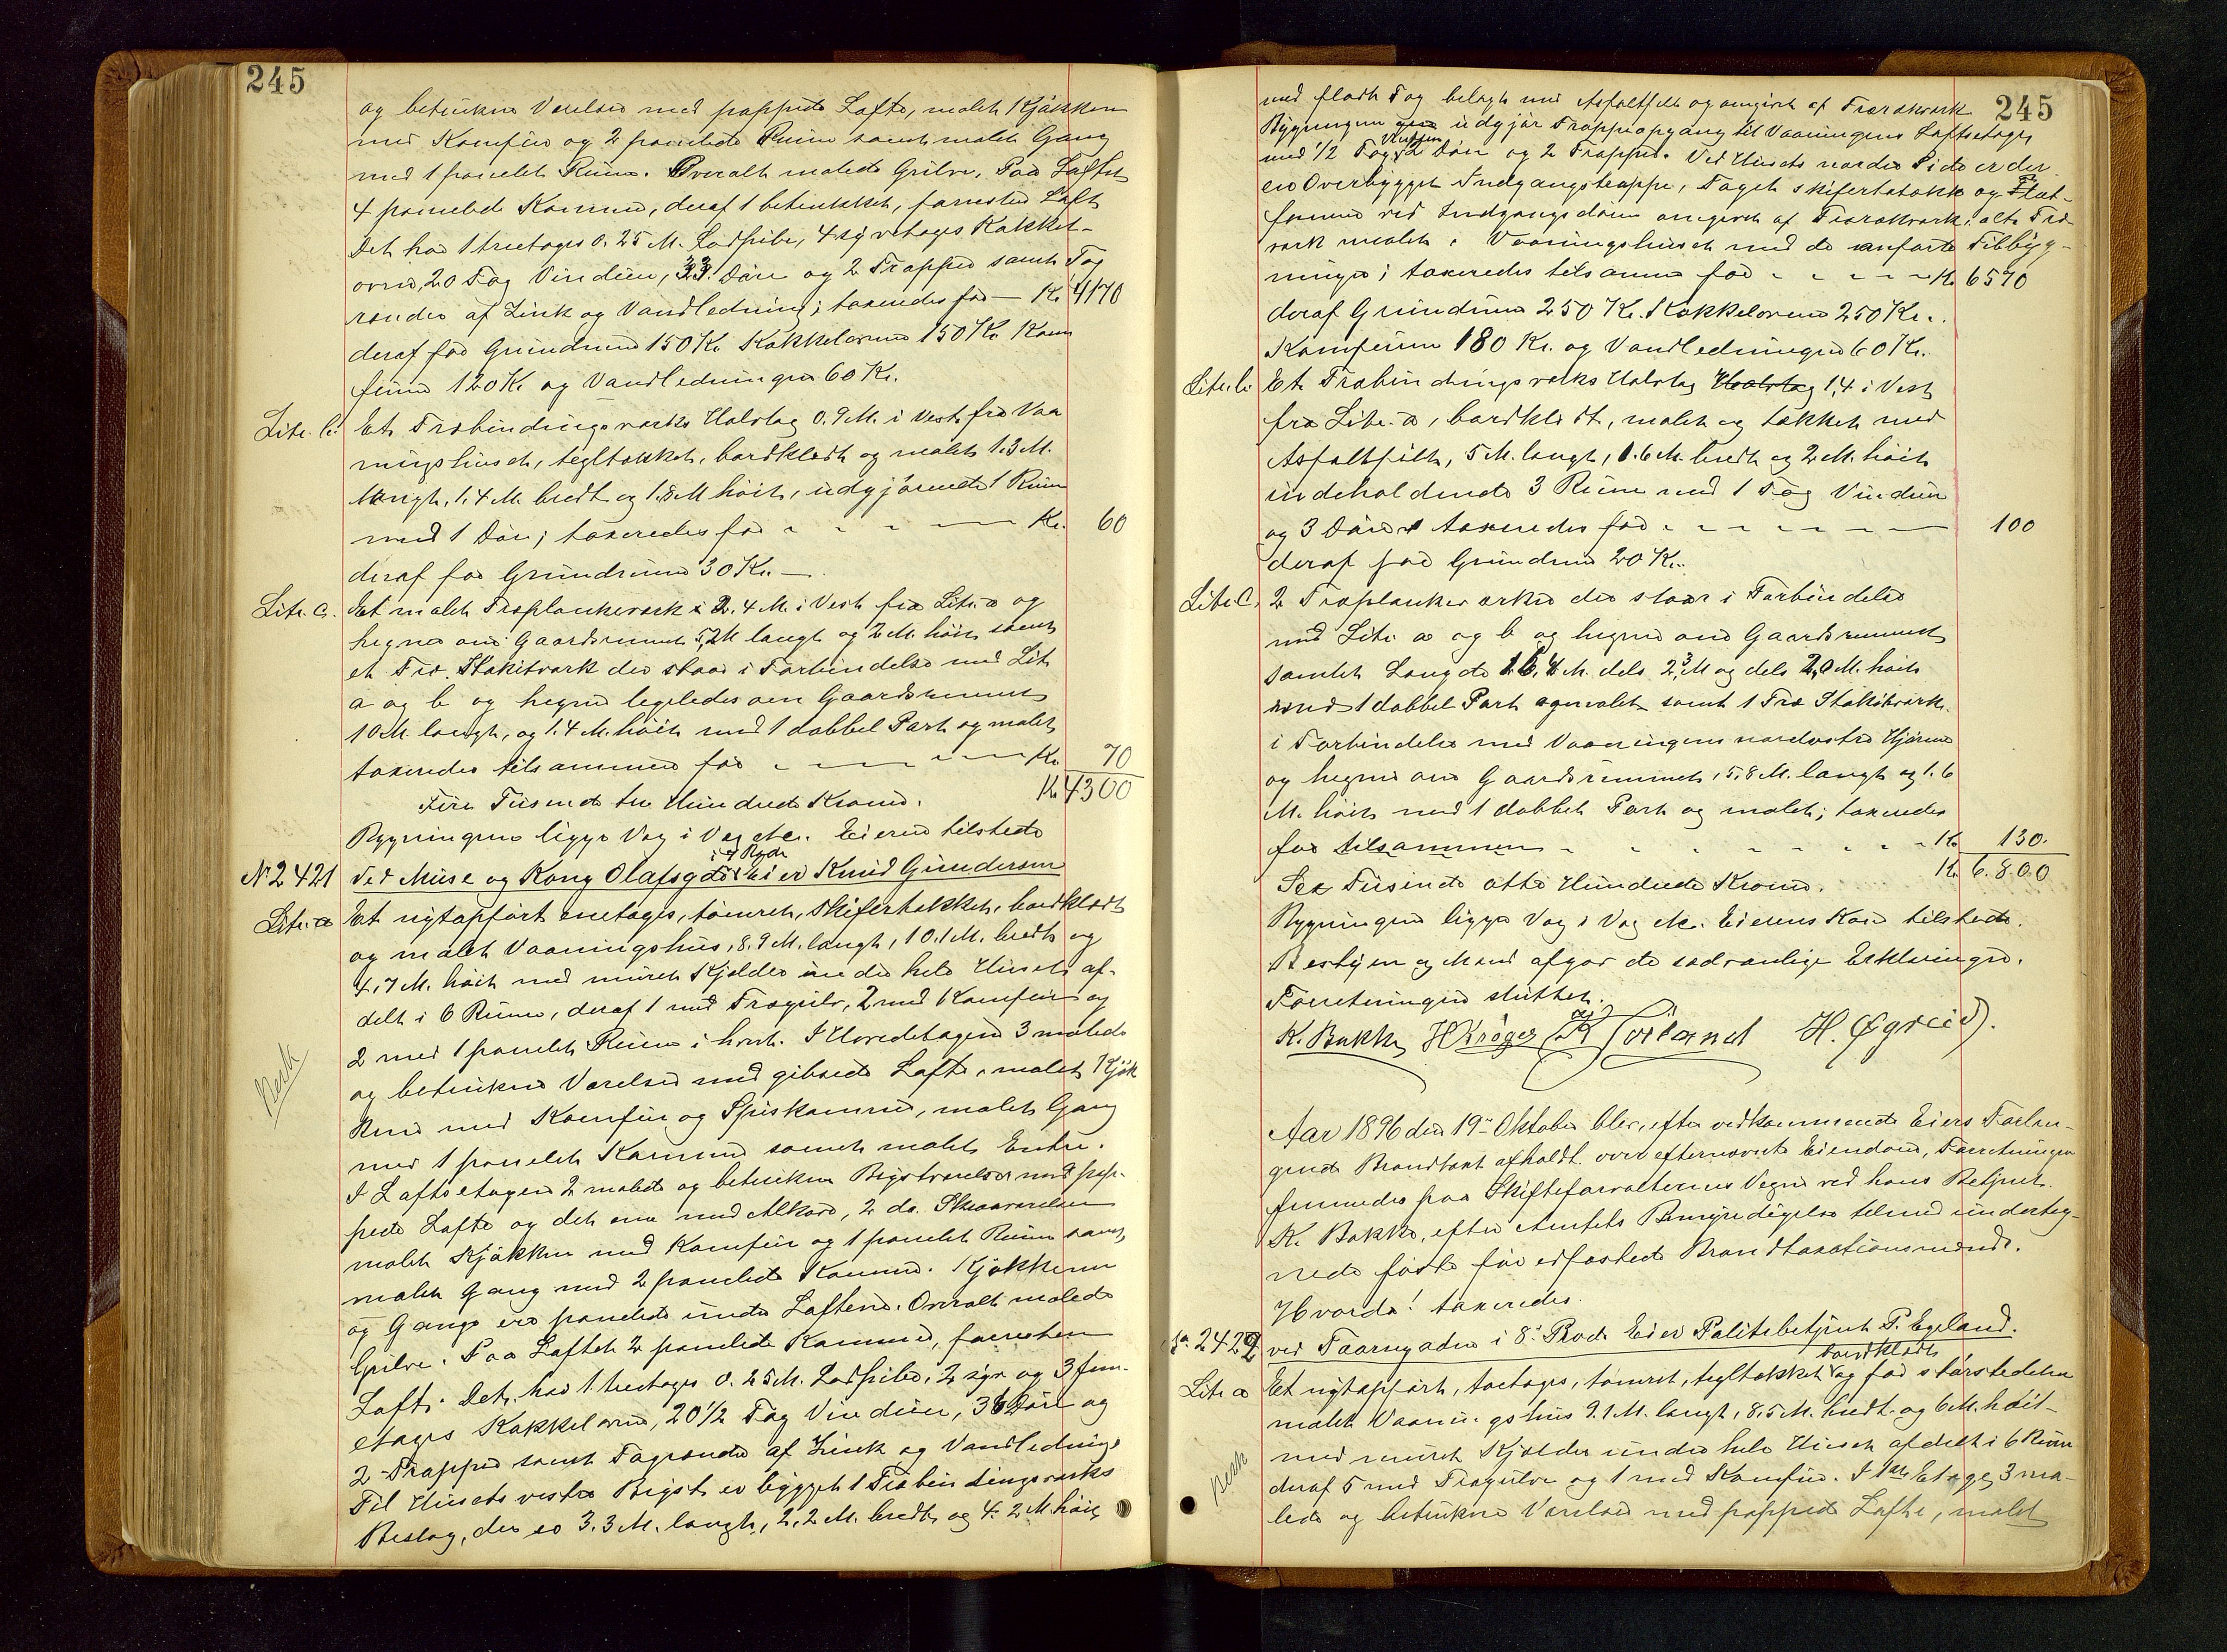 245
og betrukne Værelser med pappede Lofte, malet Kjøkken
med Komfur og 2 panelede Rum samt malet Gang
med 1 panelet Rum. Overalt malede Gulve. Paa Loftet
4 panelede Kammer, deraf 1 betrukket, forresten Loft
Det har 1 treetages 0.25 M. Lodpibe, 4 syvetages Kakkel-
ovne, 20 Fag Vinduer, 23 Døre og 2 Trapper samt Tag
render af Zink og Vandledning; taxeredes for — Kr. 4170
deraf for Grundmur 150 Kr. Kakkelovne 150 Kr. Kom
furer 120 Kr. og Vandledningen 60 Kr.
Litr. b. Et Træbindingsværks Halvtag 0.9 M. i Vest fra Vaa
ningshuset, tegltækket, bordklædt og malet 1.3 M.
langt, 1.4 M. bredt og 1.8 M høit, udgjørende 1 Rum
med 1 Dør; taxeredes for — Kr. 60
deraf for Grundmur 30 Kr. —
Litr. c. Et malet Træplankeværk 2.4 M. i Vest fra Litr. a og
hegner om Gaardsrummet 5,2 M langt og 2 M. høit samt
et Træ Stakitværk der staar i Forbindelse med Lit
a og b og hegner ligeledes om Gaardsrummet
10 M. langt, og 1.4 M. høit med 1 dobbel Port og malet
taxeredes tilsammen for — Kr. 70
Fire Tusinde tre Hundrede Kroner. Kr. 4300
Bygningerne ligge Væg i Væg etc. Eieren tilstede
No 2421 Ved Muse og Kong Olafsgd. i 8 Rode Eier Knud Gundersen
Litr. a Et nyt opført enetages, tømret, skifertækket, bordklædt
og malet Vaaningshus, 8.9 M. langt, 10.1 M. bredt og
4.7 M. høit med muret Kjælder under hele Huset af-
delt i 6 Rum, deraf 1 med Trægulv, 2 med Komfur og
2 med 1 panelet Rum i hvert. I Hovedetagen 3 malede
og betrukne Værelser med gibsede Lofte, malet Kjøk
Besk
ken med Komfur og Spiskammer, malet Gang
med 1 panelet Kammer samt malet Entre.
I Loftsetagen 2 malede og betrukne Kvistværelser med pap-
pede Lofte og det ene med Alkove, 2 do. Skraaværelser
malet Kjøkken med Komfur og 1 panelet Rum samt
malet Gang med 2 panelede Kammer. Kjøkkenet
og Gange ere panelede under Loftene. Overalt malede
Gulve. Paa Loftet 2 panelede Kammer, forresten
Loft. Det har 1 treetages 0.25 M. Lodpibe, 2 syv og 3 fem-
etages Kakkelovne, 20 1/2 Fag Vinduer, 36 Døre og
2 Trapper samt Tagrender af Zink og Vandledning.
Til Husets vestre Kvist er bygget 1 Træbindingsværks
Beslag, der er 3.3 M. langt, 2.2 M. bredt og 4.2 M. høit
245
med fladt Tag belagt med Asfaltfilt og omgivet af Træværk
Bygningen udgjør Trappeopgang til Vaaningens Loftsetage
med 1/2 Fag Vinduer 2 Døre og 2 Trapper. Ved Husets nordre Side er der
en Overbygget Indgangstrappe, Taget skifertækket og Plat-
formen ved Indgangsdøren omgivet af Træværk; alt Træ-
værk malet. Vaaningshuset med de anførte Tilbyg-
ninger; taxeredes tilsammen for — Kr. 6570
deraf Grundmur 250 Kr. Kakkelovne 250 Kr.
Komfurer 180 Kr. og Vandledningen 60 Kr.
Litr. b. Et Træbindingsværks Halvtag Halvtag 1.4 i Vest
fra Litr. a, bordklædt, malet og tækket med
Asfaltfilt, 5 M. langt, 1.6 M. bredt og 2 M. høit
indeholdende 3 Rum med 1 Fag Vinduer
og 3 Døre taxeredes for — 100
deraf for Grundmur 20 Kr.
Litr. C. 2 Træplankeværker der staar i Forbindelse
med Litr. a og b og hegner om Gaardsrummet
samlet Længde 16,4 M. dels 2,3 M og dels 2,0 M. høit
med 1 dobbel Port og malet samt 1 Træ Stakitværk
i Forbindelse med Vaaningens nordøstre Hjørne
og hegner om Gaardsrummet, 5.8 M. langt og 1.6
M. høit med 1 dobbelt Port og malet; taxeredes
for tilsammen — Kr. 130.
Sex Tusinde otte Hundrede Kroner. Kr. 6.800
Bygningerne ligge Væg i Væg etc. Eierens Kone tilstede.
Bestyrer og Mænd afgav de sædvanlige Erklæringer.
Forretningen sluttet.
K. Bakke HKrøger H. Øgreid.
Aar 1896 den 19de Oktober blev, efter vedkommende Eiers Forlan-
gende Brandtaxt afholdt over efternævnte Eiendom, Forretningen
fremmedes paa Skifteforvalterens Vegne ved hans Betjent
K. Bakke, efter Amtets Bemyndigelse tilmed underteg-
nede faste for edfæstede Brandtaxationsmænd.
Hvorda! taxeredes.
No 2422 ved Taarngaden i 8 Rode Eier Politibetjent P. Egeland.
Litr. a Et nytopført, toetages, tømret, tegltækket bordklædt og for størstedelen
malet Vaaningshus 9.1 M. langt, 8.5 M. bredt og 6 M. høit
med muret Kjælder under hele Huset afdelt i 6 Rum
Besk
deraf 5 med Trægulve og 1 med Komfur. I 1ste Etage, 3 ma-
lede og betrukne Værelser med pappede Lofte, malet